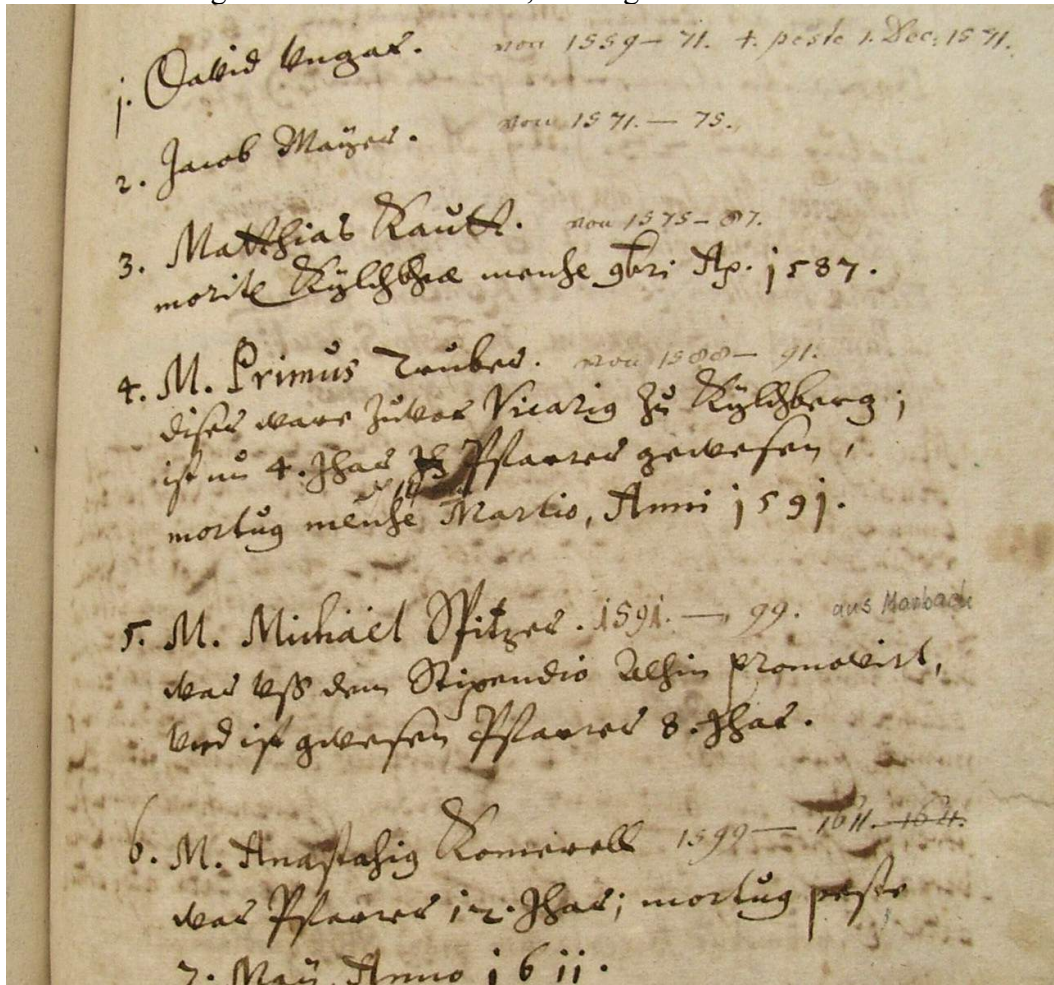 1. David Ungar. von 1559 – 71. †. peste 1. Dec. 1571.
2. Jacob Mayer. von 1571. — 75.
3. Matthias Kautt. von 1575 – 87.
Kylchbergæ mense 9bri Ao. 1587.
4. M. Primus Truber. von 1588 – 91.
diser ware zuvor Vicarius zu Kylchberg;
ist nu 4. Jhar Pfarrer gewesen,
mortuus mense Martio, Anni 1591.
5. M. Michaël Spitzer. 1591. — 99. aus Marbach
war uss dem Stipendio alhin promovirt,
und ist gwesen Pfarrer 8. Jhar.
6. M. Anastasius Komerell 1599 — 1611. 1611.
war Pfarrer 12. Jhar; mortuus peste
7. Maÿ Anno 1611.